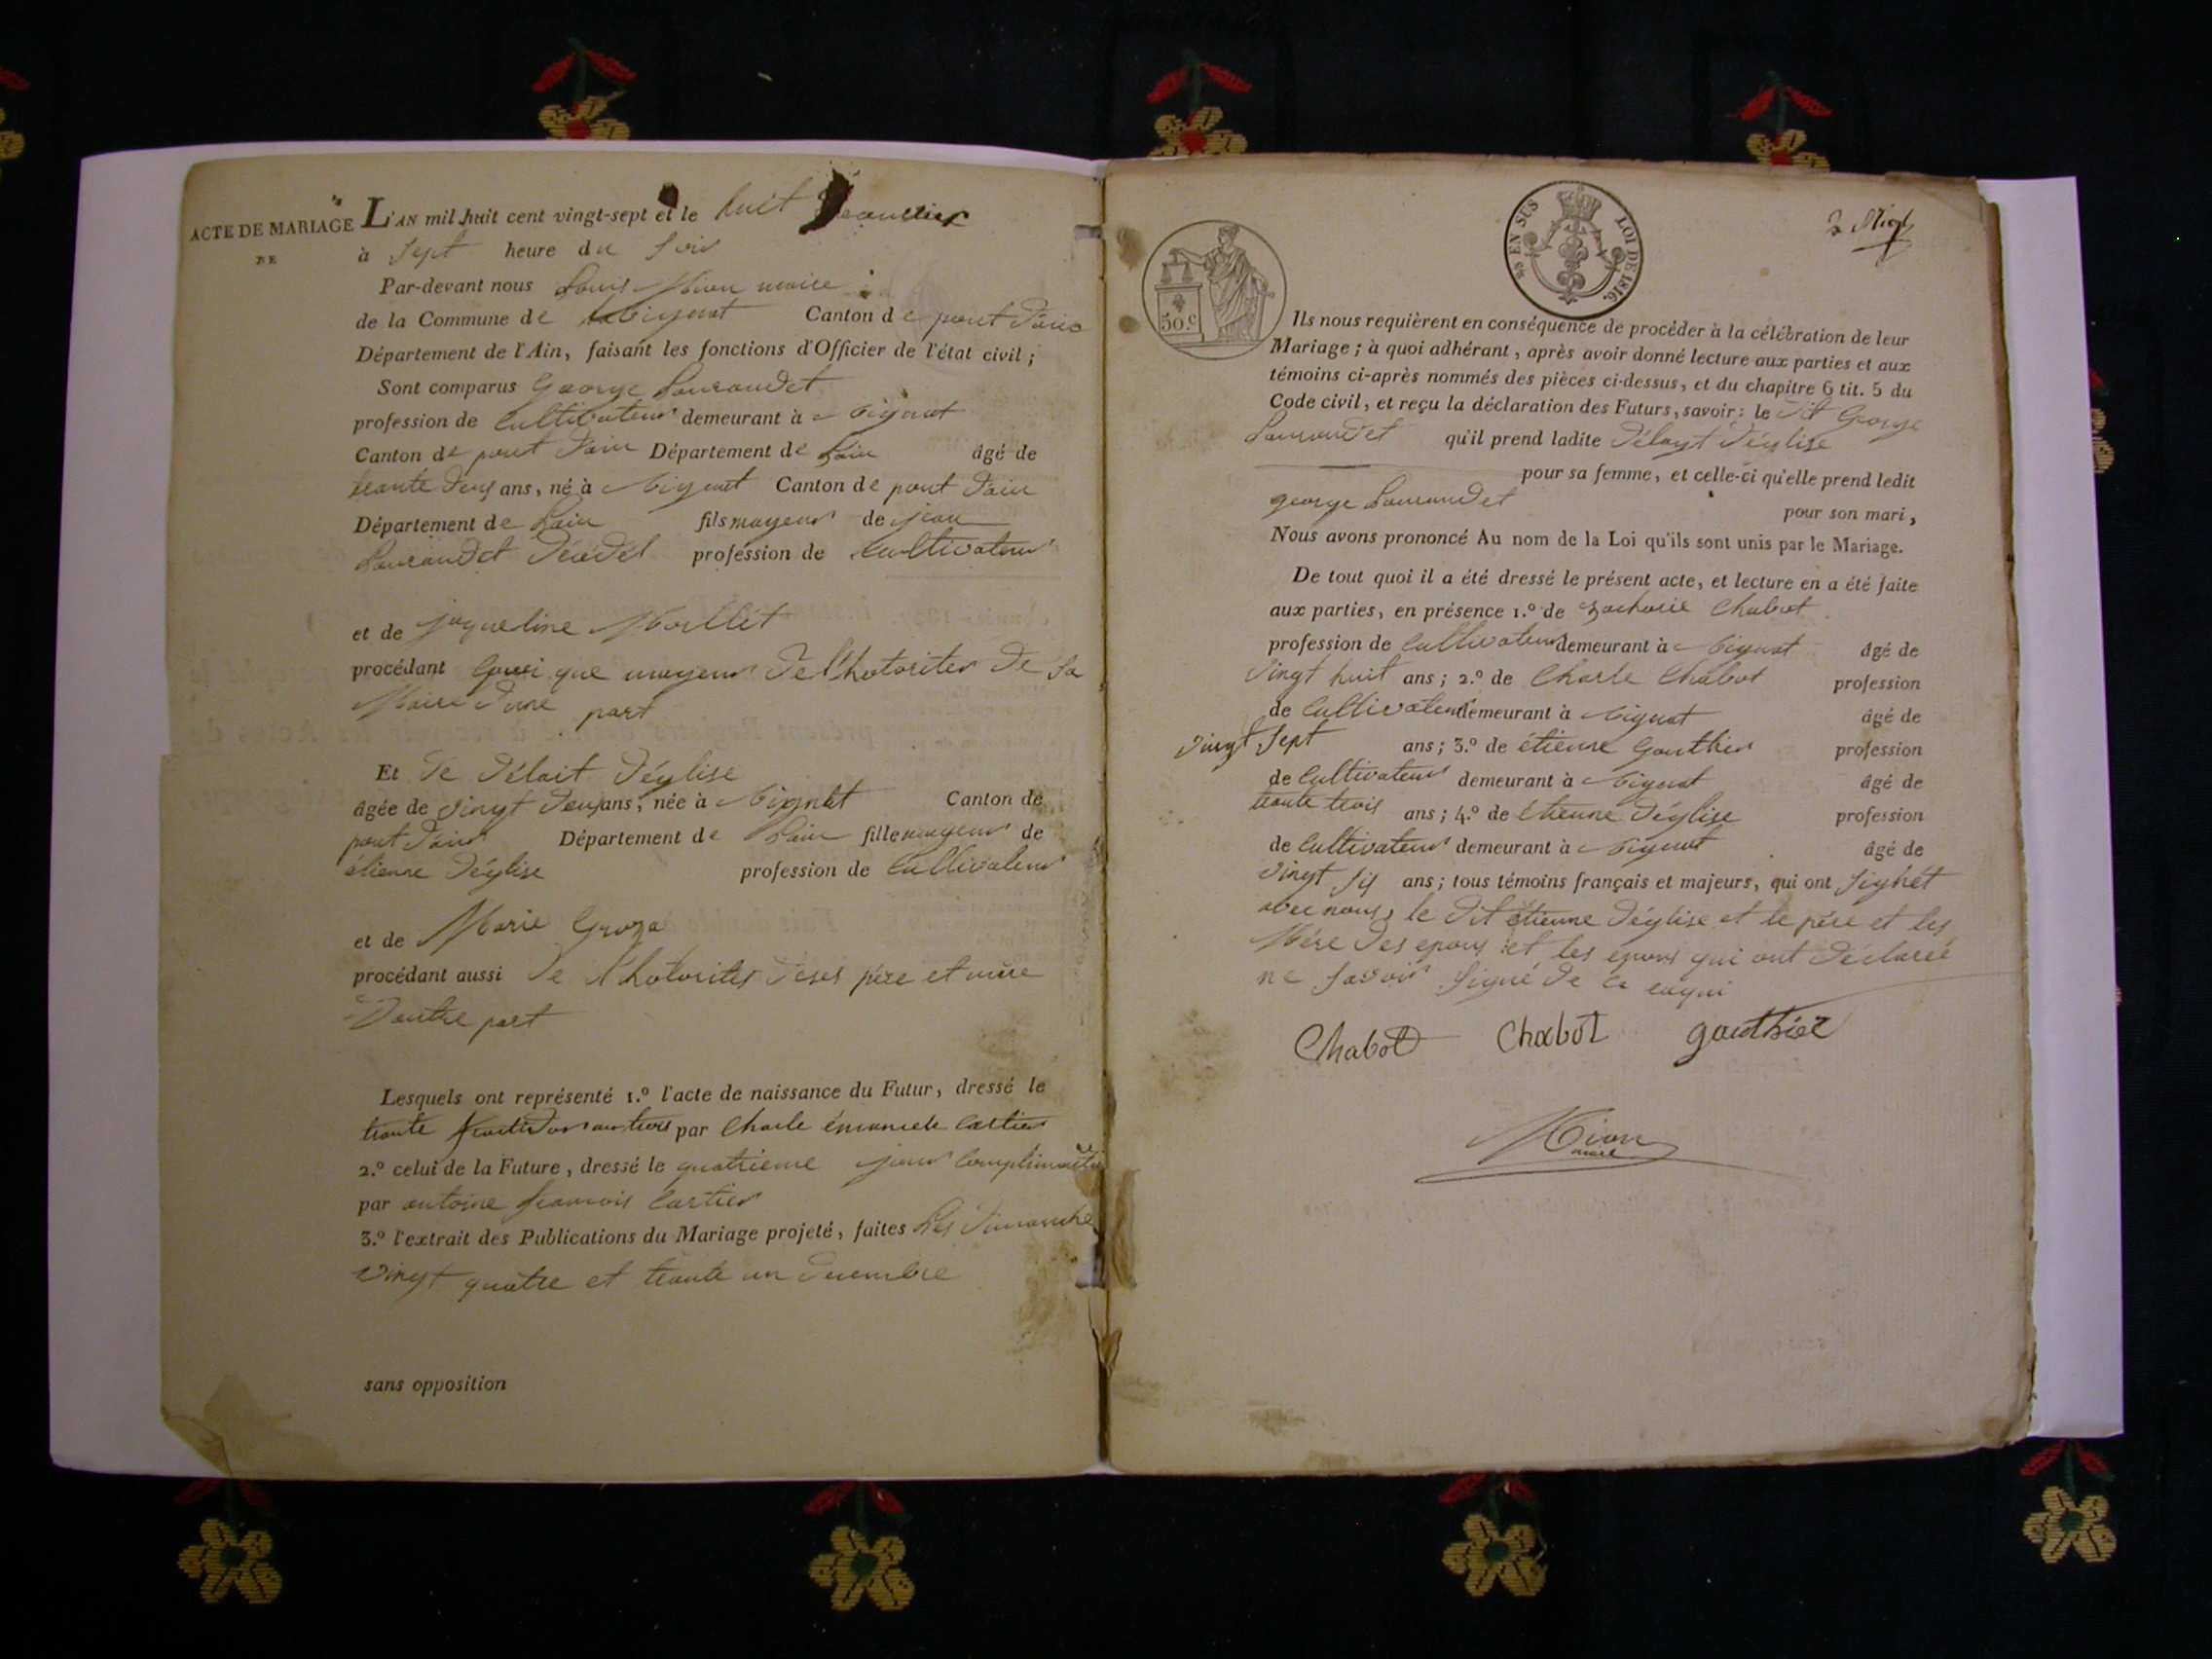 ACTE DE MARIAGE
DE
L'AN mil huit cent vingt-sept et le huit
à Sept heure du Soir
Par-devant nous Louis Mion maire
de la Commune de Canton de pont Dain
Département de l'Ain, faisant les fonctions d'Officier de l'état civil;
Sont comparus George
profession de Cultivateur demeurant à
Canton de pont Dain Département de Lain âgé de
trante deux ans, né à Canton de pont Dain
Département de Lain fils mayeur de jean
profession de Cultivateur
et de jaqueline
procédant que mayeur De l'hotoriter De Sa
Maire Dune part
Et De Délait Déglise
âgée de Vingt Deux ans, née à Canton de
pont Dain Département de Lain fille mayeur de
étienne Déglise profession de Cultivateur
et de Marie
procédant aussi De l'hotoriter Deses père et mère
Dautre part
Lesquels ont représenté 1.º l'acte de naissance du Futur, dressé le
trante par Charle Cartier
2.º celui de la Future, dressé le quatrieme jour
par antoine francois Cartier
3.º l'extrait des Publications du Mariage projeté, faites Les Dimanche
Vingt quatre et trante un Decembre
sans opposition
50.c
EN SUS LOI DE 1816.
Ils nous requièrent en conséquence de procéder à la célébration de leur
Mariage; à quoi adhérant, après avoir donné lecture aux parties et aux
témoins ci-après nommés des pièces ci-dessus, et du chapitre 6 tit. 5 du
Code civil, et reçu la déclaration des Futurs, savoir: le Dit George
qu'il prend ladite Déglise
pour sa femme, et celle-ci qu'elle prend ledit
george
pour son mari,
Nous avons prononcé Au nom de la Loi qu'ils sont unis par le Mariage.
De tout quoi il a été dressé le présent acte, et lecture en a été faite
aux parties, en présence 1.º de Zacharie Chabot
profession de Cultivateur demeurant à âgé de
Vingt huit ans; 2.º de Charle Chabot profession
de Cultivateur demeurant à âgé de
Vingt Sept ans; 3.º de étienne Gauthier profession
de Cultivateur demeurant à âgé de
trante trois ans; 4.º de étienne Déglise profession
de Cultivateur demeurant à âgé de
Vingt Six ans; tous témoins français et majeurs, qui ont Signét
avec nous, le Dit étienne Déglise et le père et les
Mére Des epoux et les epoux qui ont Déclarée
ne Savoir Signé De ce
Chabot Chabot gauthier
Mion
mare